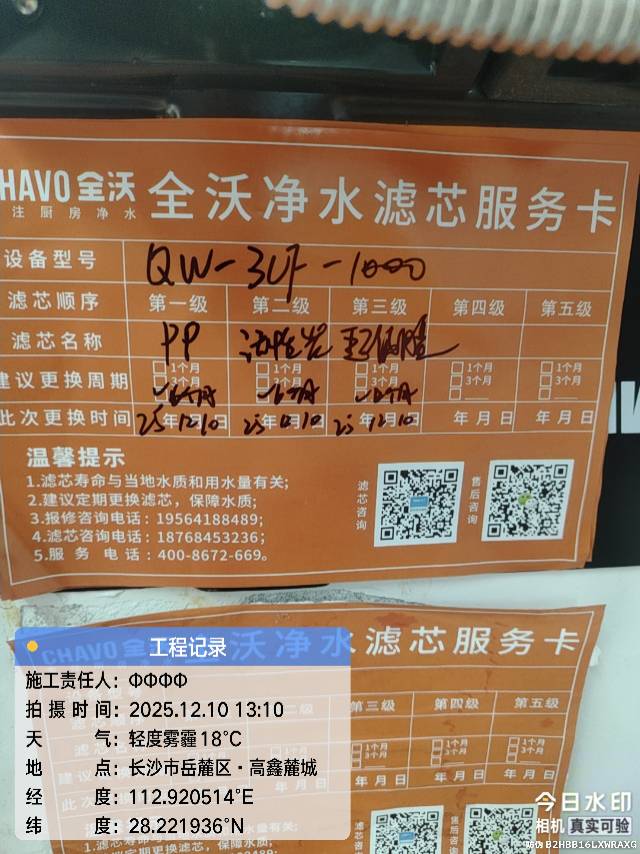 HAVO 全沃
注厨房净水
全沃净水滤芯服务卡
设备型号 QW-3UF-1000
滤芯顺序 第一级 第二级 第三级 第四级 第五级
滤芯名称 PP 活性炭
建议更换周期 1个月 1个月 1个月 1个月 1个月
3个月 3个月 3个月 3个月 3个月
6个月 6个月
此次更换时间 25年12月10 25年12月10 25年12月10 年 月 日 年 月 日
温馨提示
1.滤芯寿命与当地水质和用水量有关;
2.建议定期更换滤芯，保障水质;
3.报修咨询电话：19564188489;
4.滤芯咨询电话：18768453236;
5.服务电话：400-8672-669。
滤芯咨询
售后咨询
CHAVO 全沃净水滤芯服务卡
第三级 第四级 第五级
1个月 1个月 1个月
3个月 3个月 3个月
年 月 日 年 月 日 年 月 日
工程记录
施工责任人：ΦΦΦΦ
拍摄时间：2025.12.10 13:10
天气：轻度雾霾 18°C
地点：长沙市岳麓区·高鑫麓城
经度：112.920514°E
纬度：28.221936°N
今日水印
相机 真实可验
防伪 B2HBB16LXWRAXG